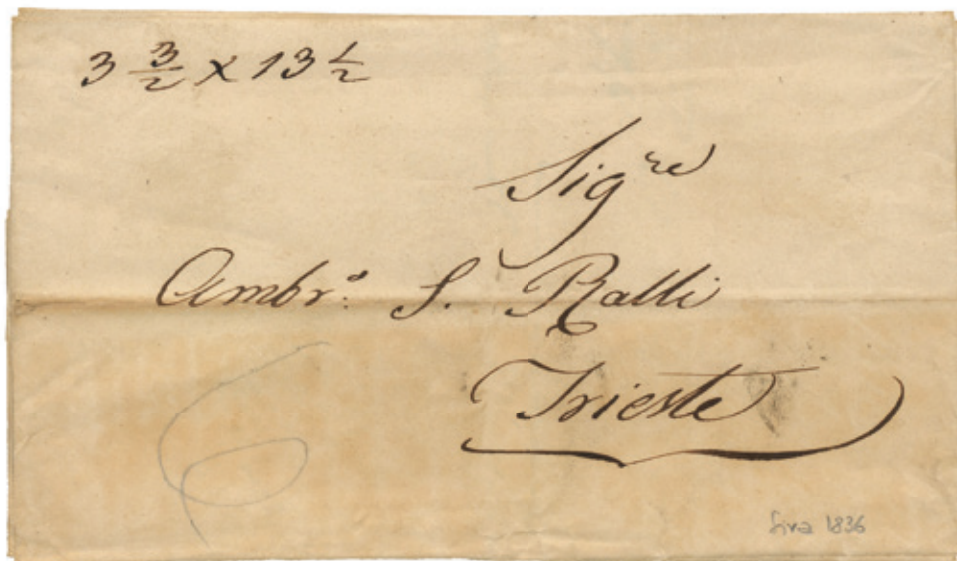 3 3/2 x 13 1/2
Sigre
Ambro: S. Ralli
Trieste
6
Sira 1836